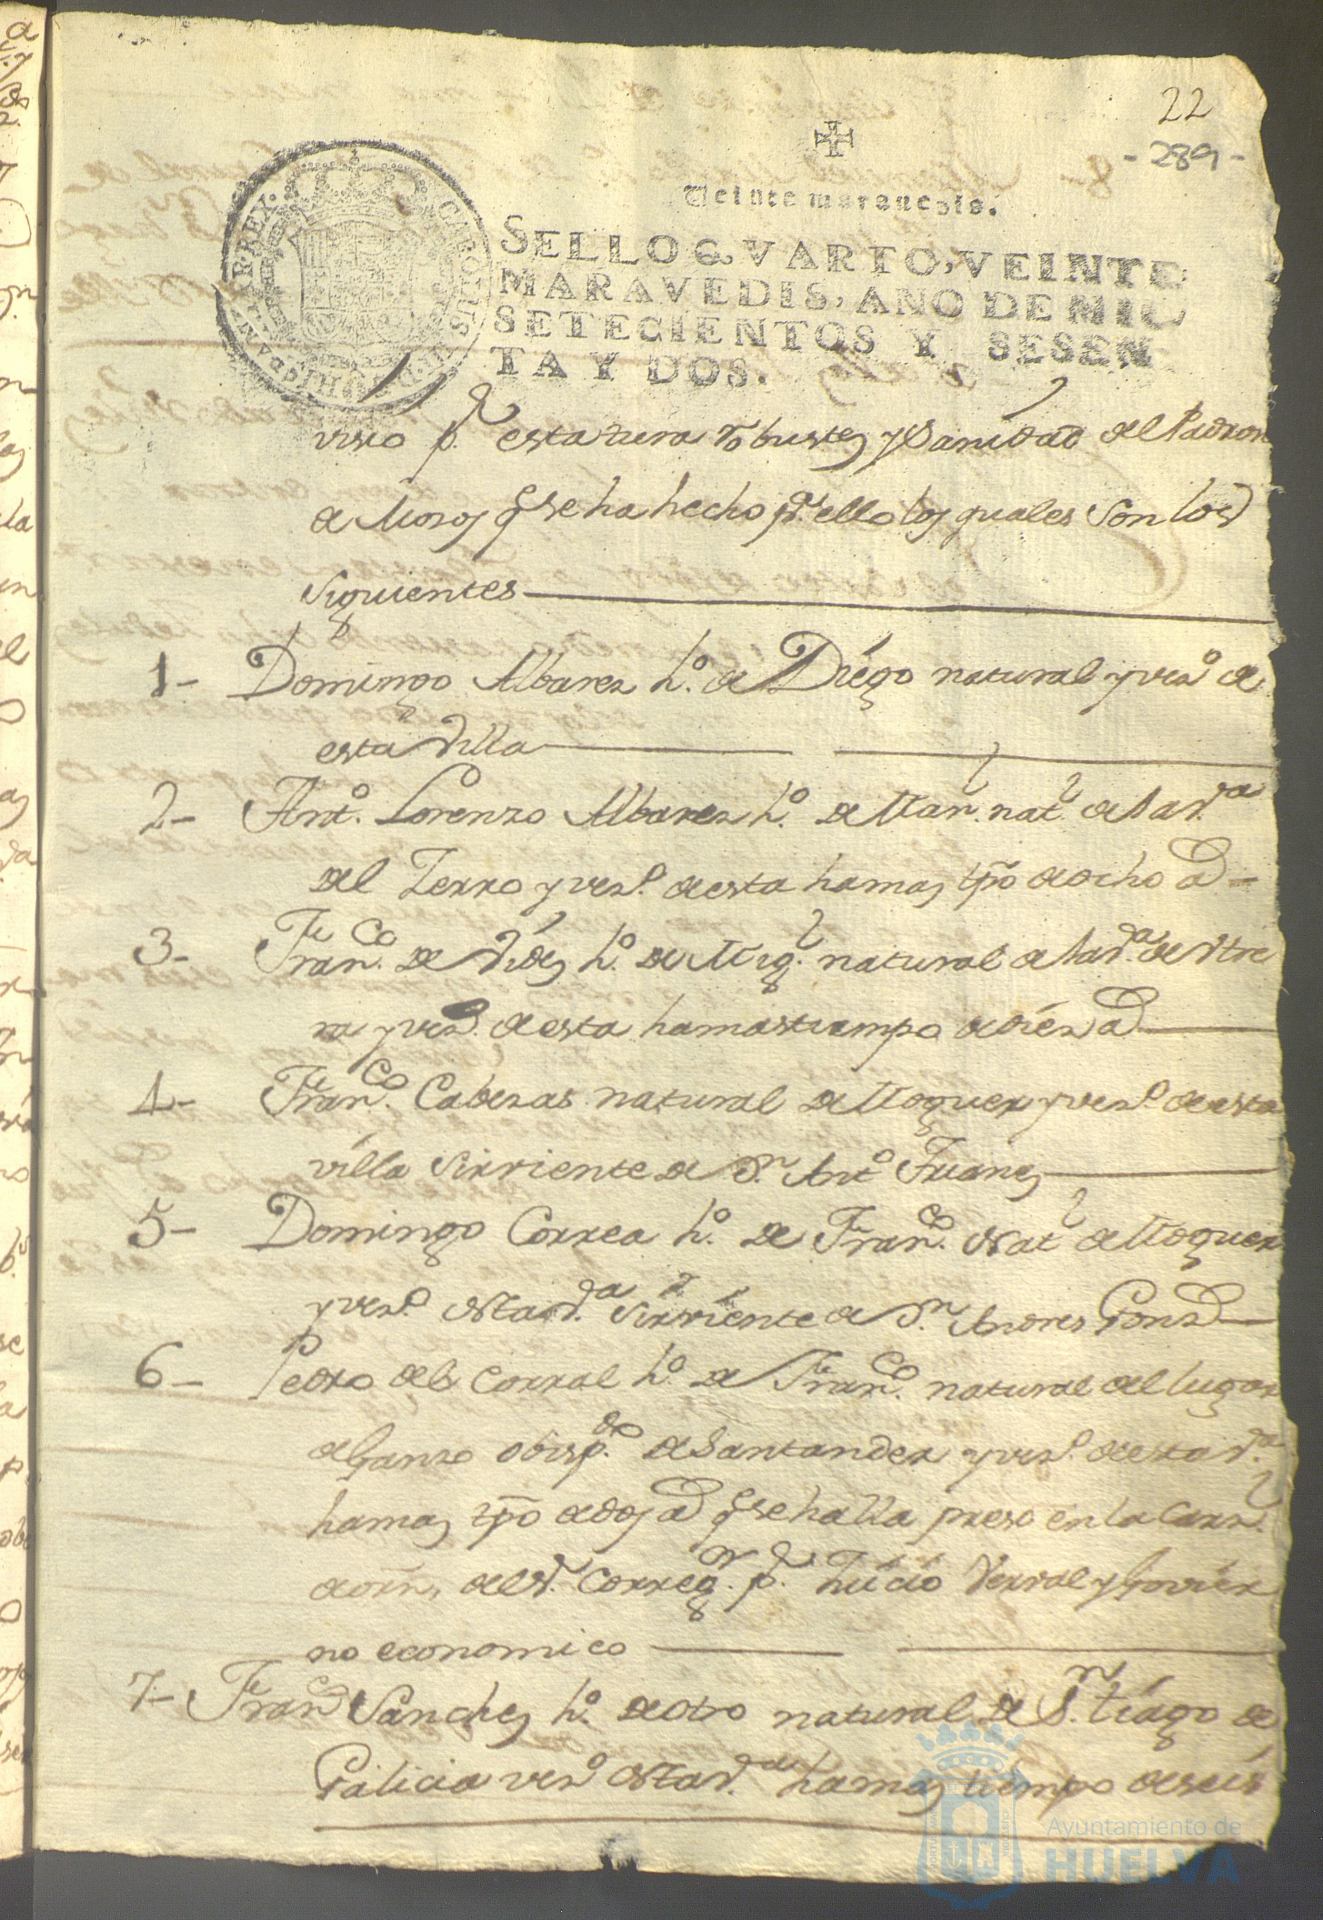 22
- 289 -
Veinte maravedis.
SELLO QVARTO, VEINTE
MARAVEDIS, AÑO DE MIL
SETECIENTOS Y SESEN
TA Y DOS.
CAROLUS III D G HISPANIAR REX
visio p.r estatura robustez y Sanidad del Padron
de Mozos q.e se ha hecho p.a ello los quales Son los
Siguientes
1- Domingo Albarez h.o de Diego natural y vez.o de
esta Villa
2- Ant.o Lorenzo Albarez h.o de Man.l nat.l de la v.a
del Zerro y vez.o de esta ha mas tpo de ocho a.s
3- Fran.co de h.o de Mig.l natural de la v.a de Utre
ra y vez.o de esta ha mas tiempo de diez a.s
4- Fran.co Cabezas natural de Moguer y vez.o de esta
villa Sirviente de D.n Ant.o
5- Domingo Correa h.o de Fran.co Nat.l de Moguer
y vez.o de sta v.a Sirviente de D.n Andres Gonz.s
6- Pedro del Corral h.o de Fran.co natural del lugar
de Ganzo obisp.do de Santander y vez.o de esta v.a
ha mas tpo de dos a.s q.e se halla preso en la Carz.l
de orn. del S.r Correg.r p.r Juicio Verval y Govier
no economico
7- Fran.co Sanchez h.o de otro natural de S.n tiago de
Galicia vez.o de sta v.a ha mas tiempo de seis
Ayuntamiento de
HUELVA